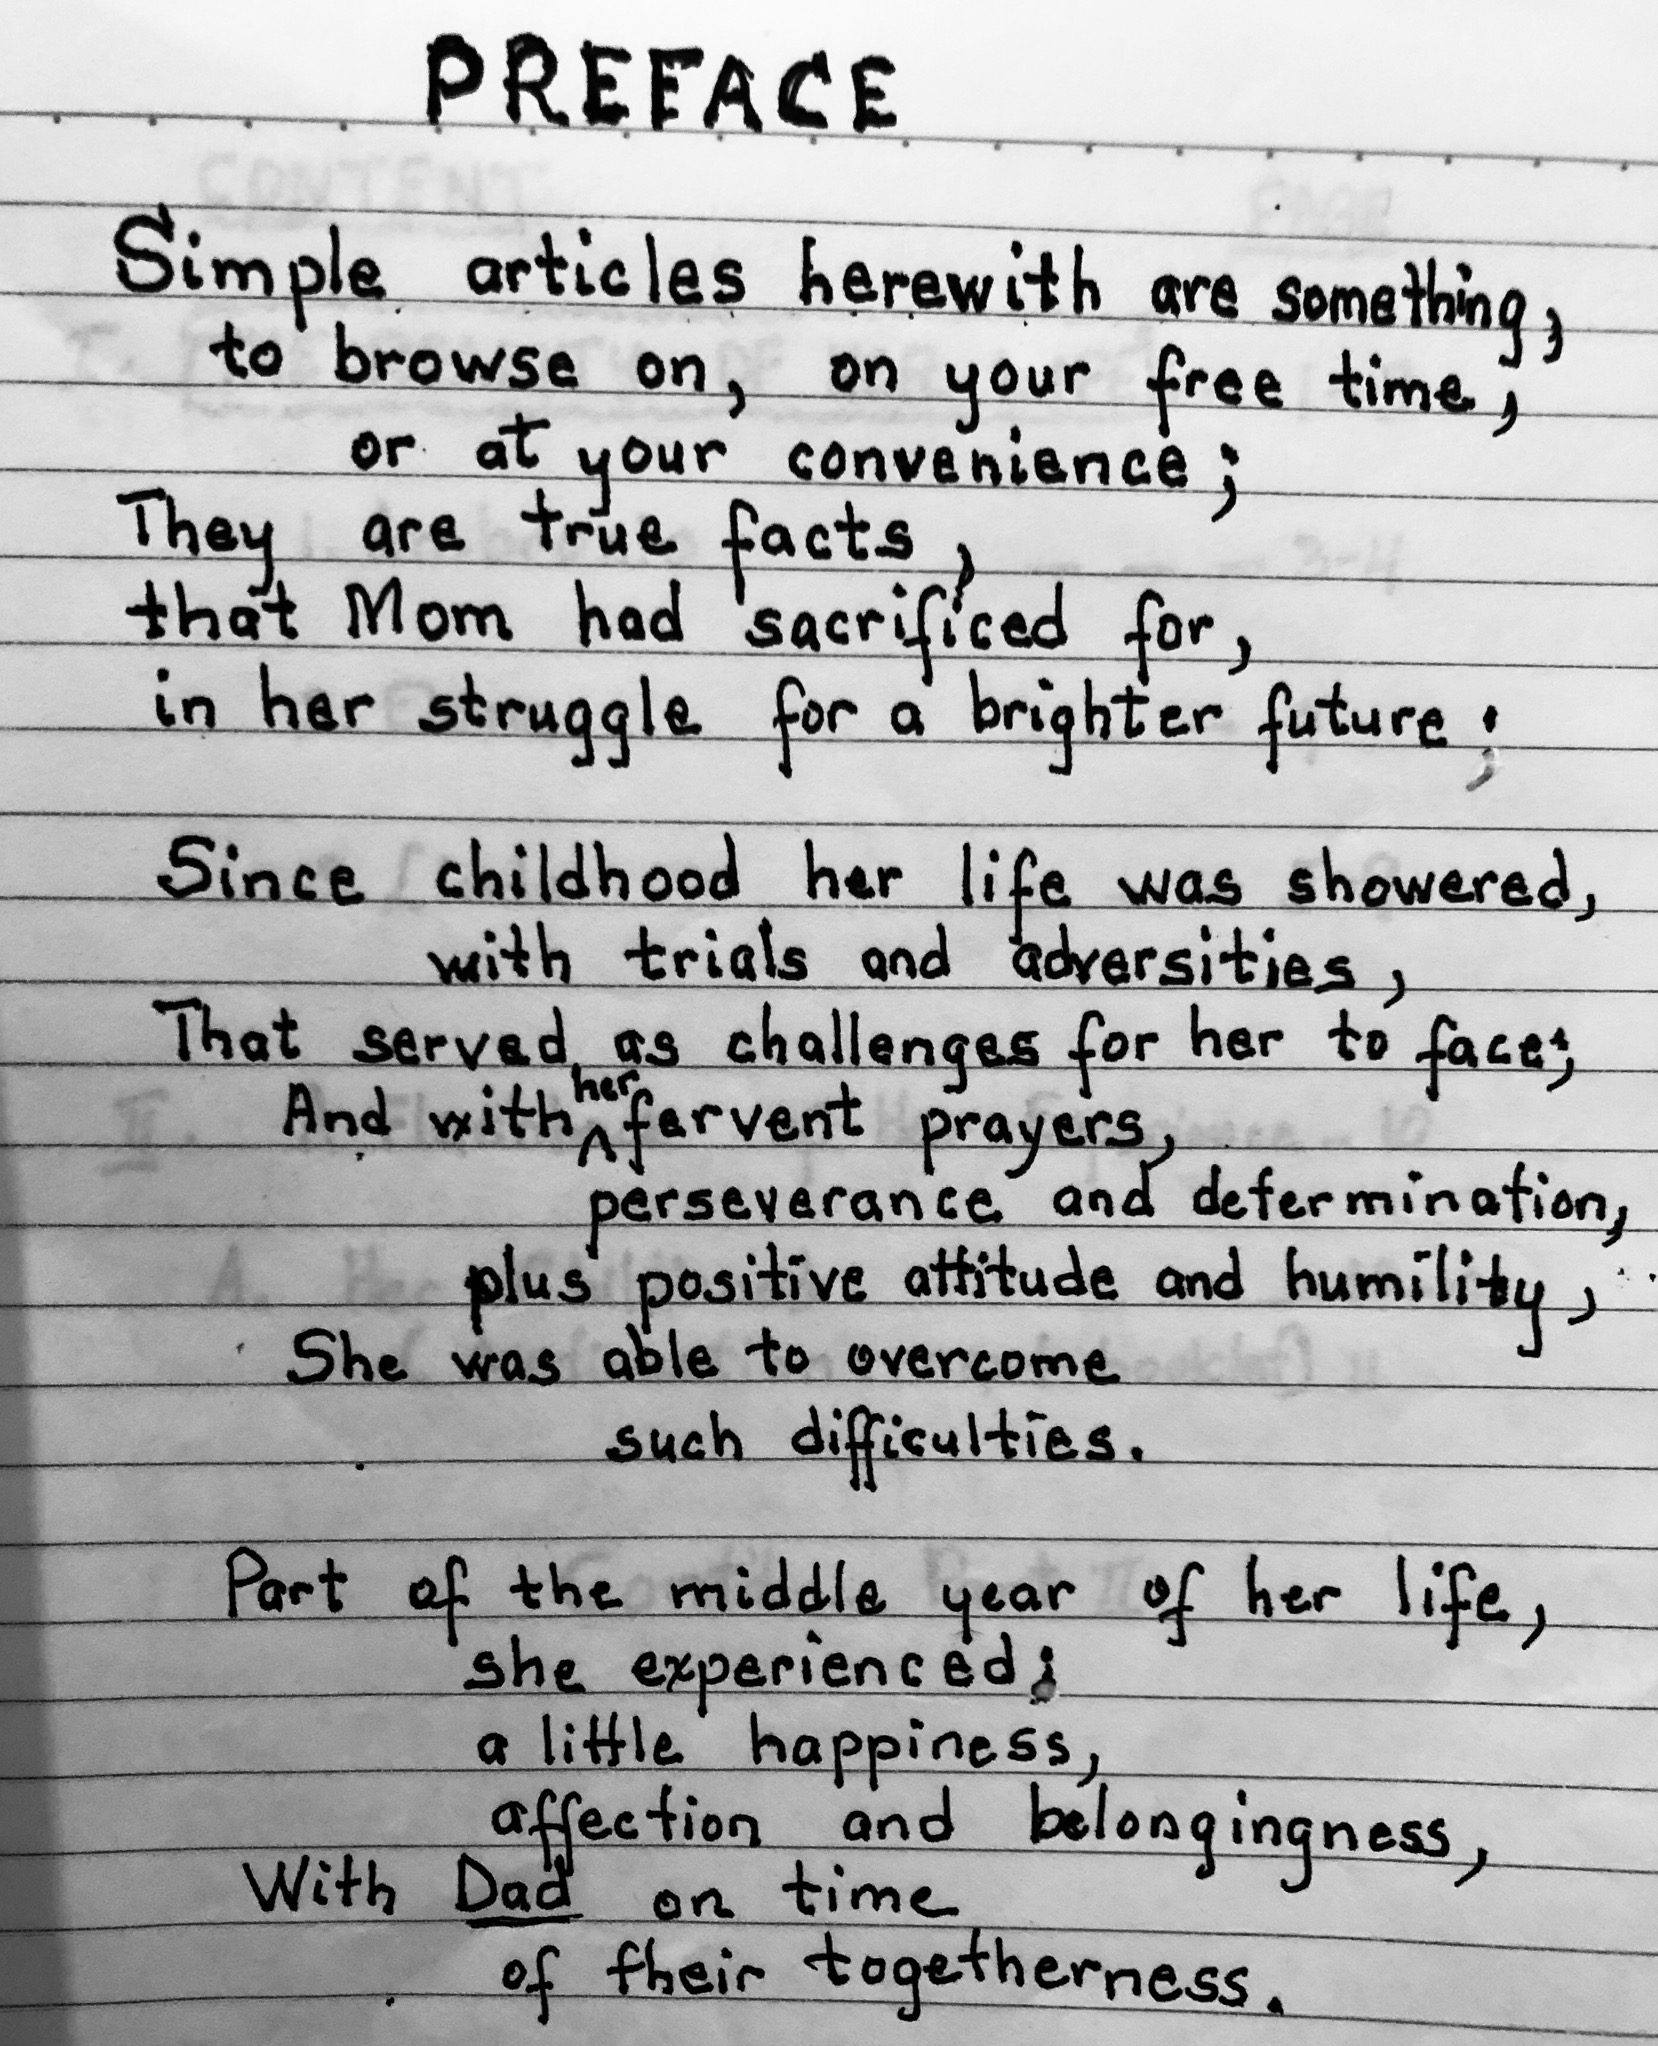 PREFACE
Simple articles herewith are something,
to browse on, on your free time,
or at your convenience;
They are true facts,
that Mom had sacrificed for,
in her struggle for a brighter future;
Since childhood her life was showered,
with trials and adversities,
That served as challenges for her to face;
And with her fervent prayers,
perseverance and determination,
plus positive attitude and humility,
She was able to overcome
such difficulties.
Part of the middle year of her life,
she experienced;
a little happiness,
affection and belongingness,
With Dad on time
of their togetherness.